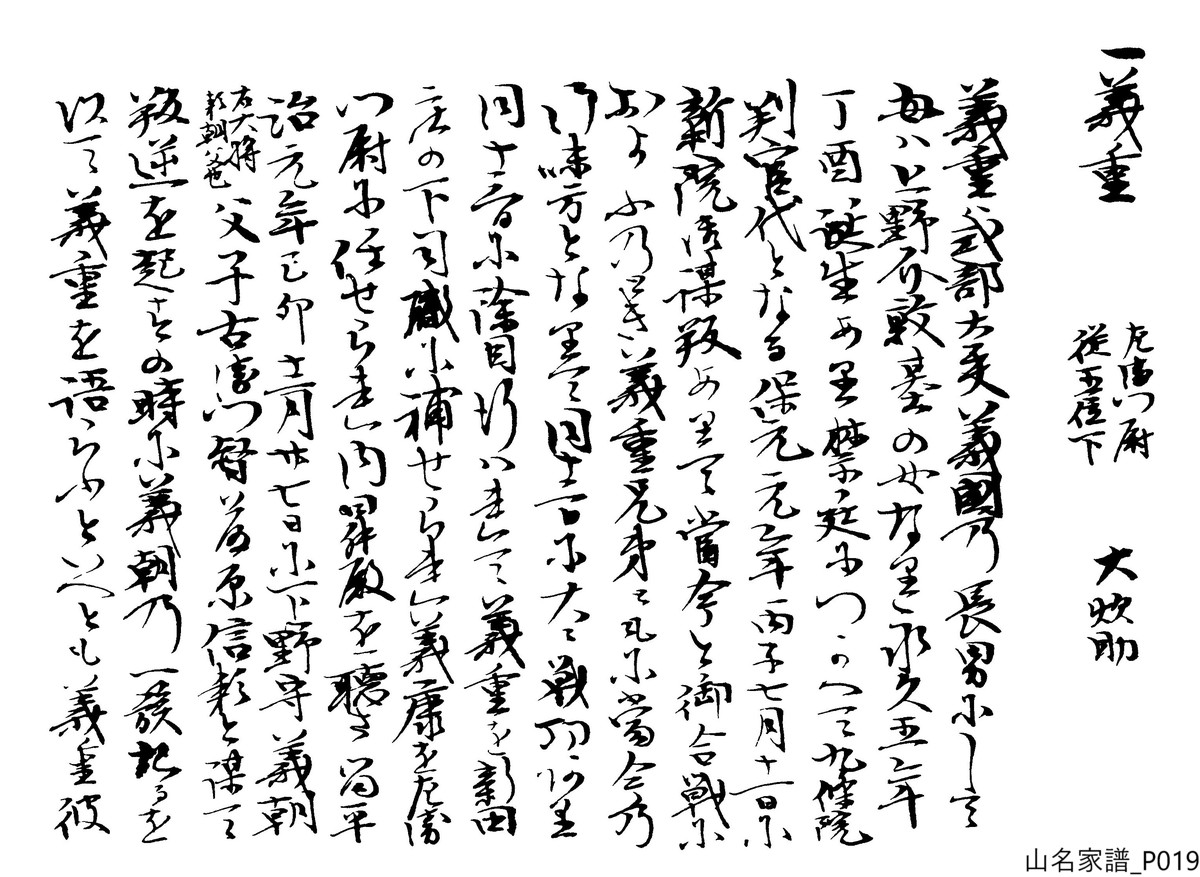 一義重
左衛門尉
従五位下
大炊助
義重ハ式部大夫義國乃長男にして
母ハ上野介敦基の女なり永久五年
丁酉誕生あり禁廷につかへて九條院
判官代となる保元元年丙子七月十一日に
新院御謀叛ありて當今と御合戦に
およふ乃とき義重兄弟ともに當今乃
御味方となりて同十一日に大に戦功あり
同十二日に除目行はれて義重を新田
庄の下司職に補せられ義康を左衛
門尉に任せられ内昇殿を聴さる平
治元年己卯十二月廿七日に下野守義朝
右大将
頼朝父也
父子右衛門督藤原信頼と謀て
叛逆を起すの時に義朝乃一族記るを
以て義重を語らふといへとも義重彼
山名家譜_P019